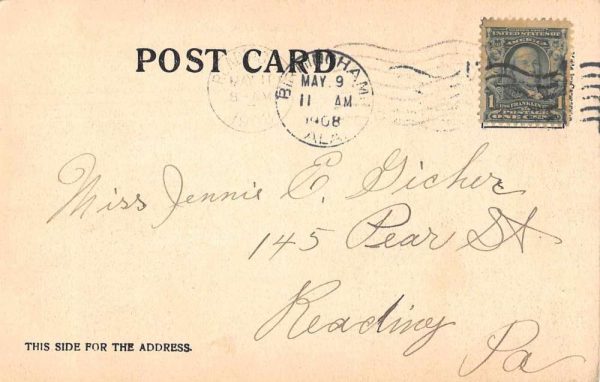 POST CARD
BIRMINGHAM
MAY 9
11 AM
1908
ALA.
UNITED STATES OF
AMERICA
1 1
FRANKLIN
POSTAGE
ONE CENT
Miss Jennie E. Gicher
145 Pear St.
Reading
Pa
THIS SIDE FOR THE ADDRESS.